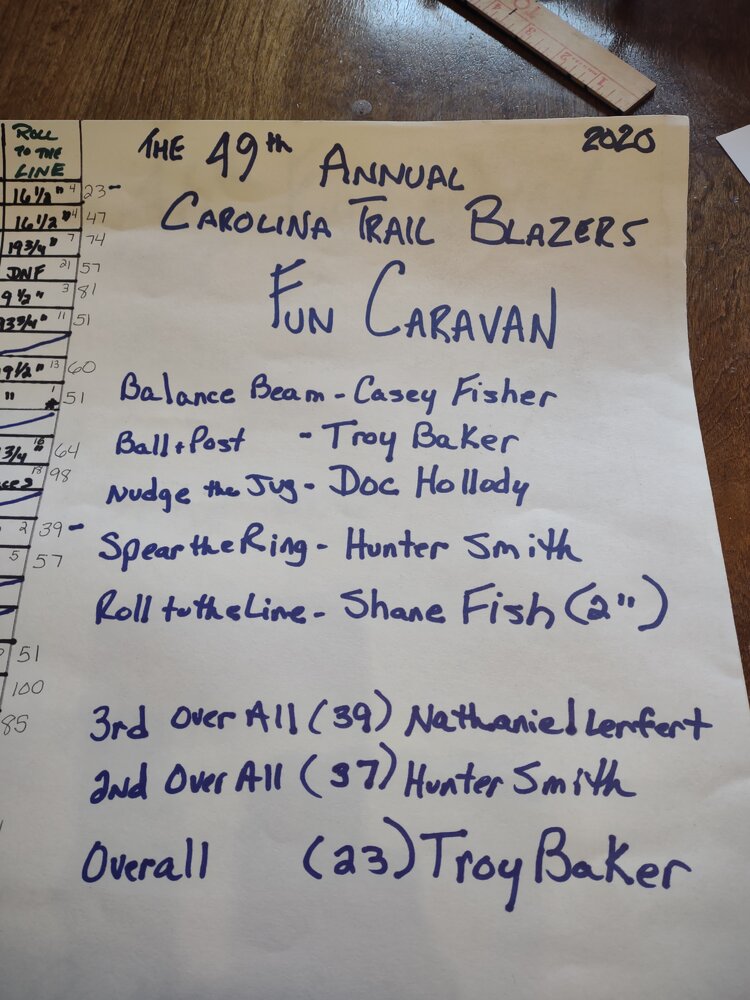 ROLL
TO THE
LINE
16 1/2" 4 23-
16 1/2" 4 47
19 3/4" 7 74
DNF 21 57
9 1/2" 3 81
11 51
9 1/2" 13 60
" 1 51
3/4" 64
98
2 39-
5 57
51
100
85
THE 49th ANNUAL 2020
CAROLINA TRAIL BLAZERS
FUN CARAVAN
Balance Beam - Casey Fisher
Ball + Post - Troy Baker
Nudge the Jug - Doc Hollady
Spear the Ring - Hunter Smith
Roll to the Line - Shane Fish (2")
3rd Over All (39) Nathaniel Lemfert
2nd Over All (37) Hunter Smith
Overall (23) Troy Baker